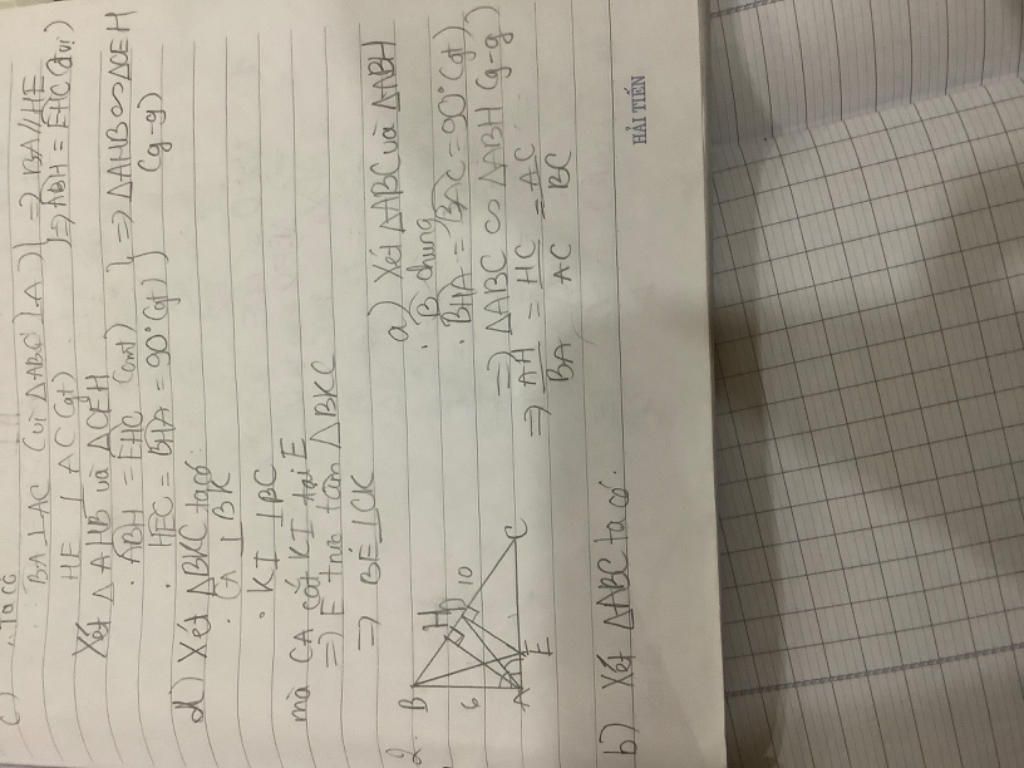 c) Ta có
BA ⊥ AC (vì △ABC ⊥ A) } ⇒ BA//HE
HE ⊥ AC (gt) } ⇒ ABH = EHC (đvị)
Xét △AHB và △CEH
· ABH = EHC (cmt) } ⇒ △AHB ∽ △CEH
· HEC = BHA = 90° (gt) } (g-g)
d) Xét △BKC ta có:
· CA ⊥ BK
· KI ⊥ BC
mà CA cắt KI tại E
⇒ E trực tâm △BKC
⇒ BE ⊥ CK
2.
B
H
D
6
10
A
E
C
a) Xét △ABC và △ABH
· B chung
· BHA = BAC = 90° (gt)
⇒ △ABC ∽ △ABH (g-g)
⇒ AH/BA = HC/AC = AC/BC
b) Xét △ABC ta có:
HẢI TIẾN